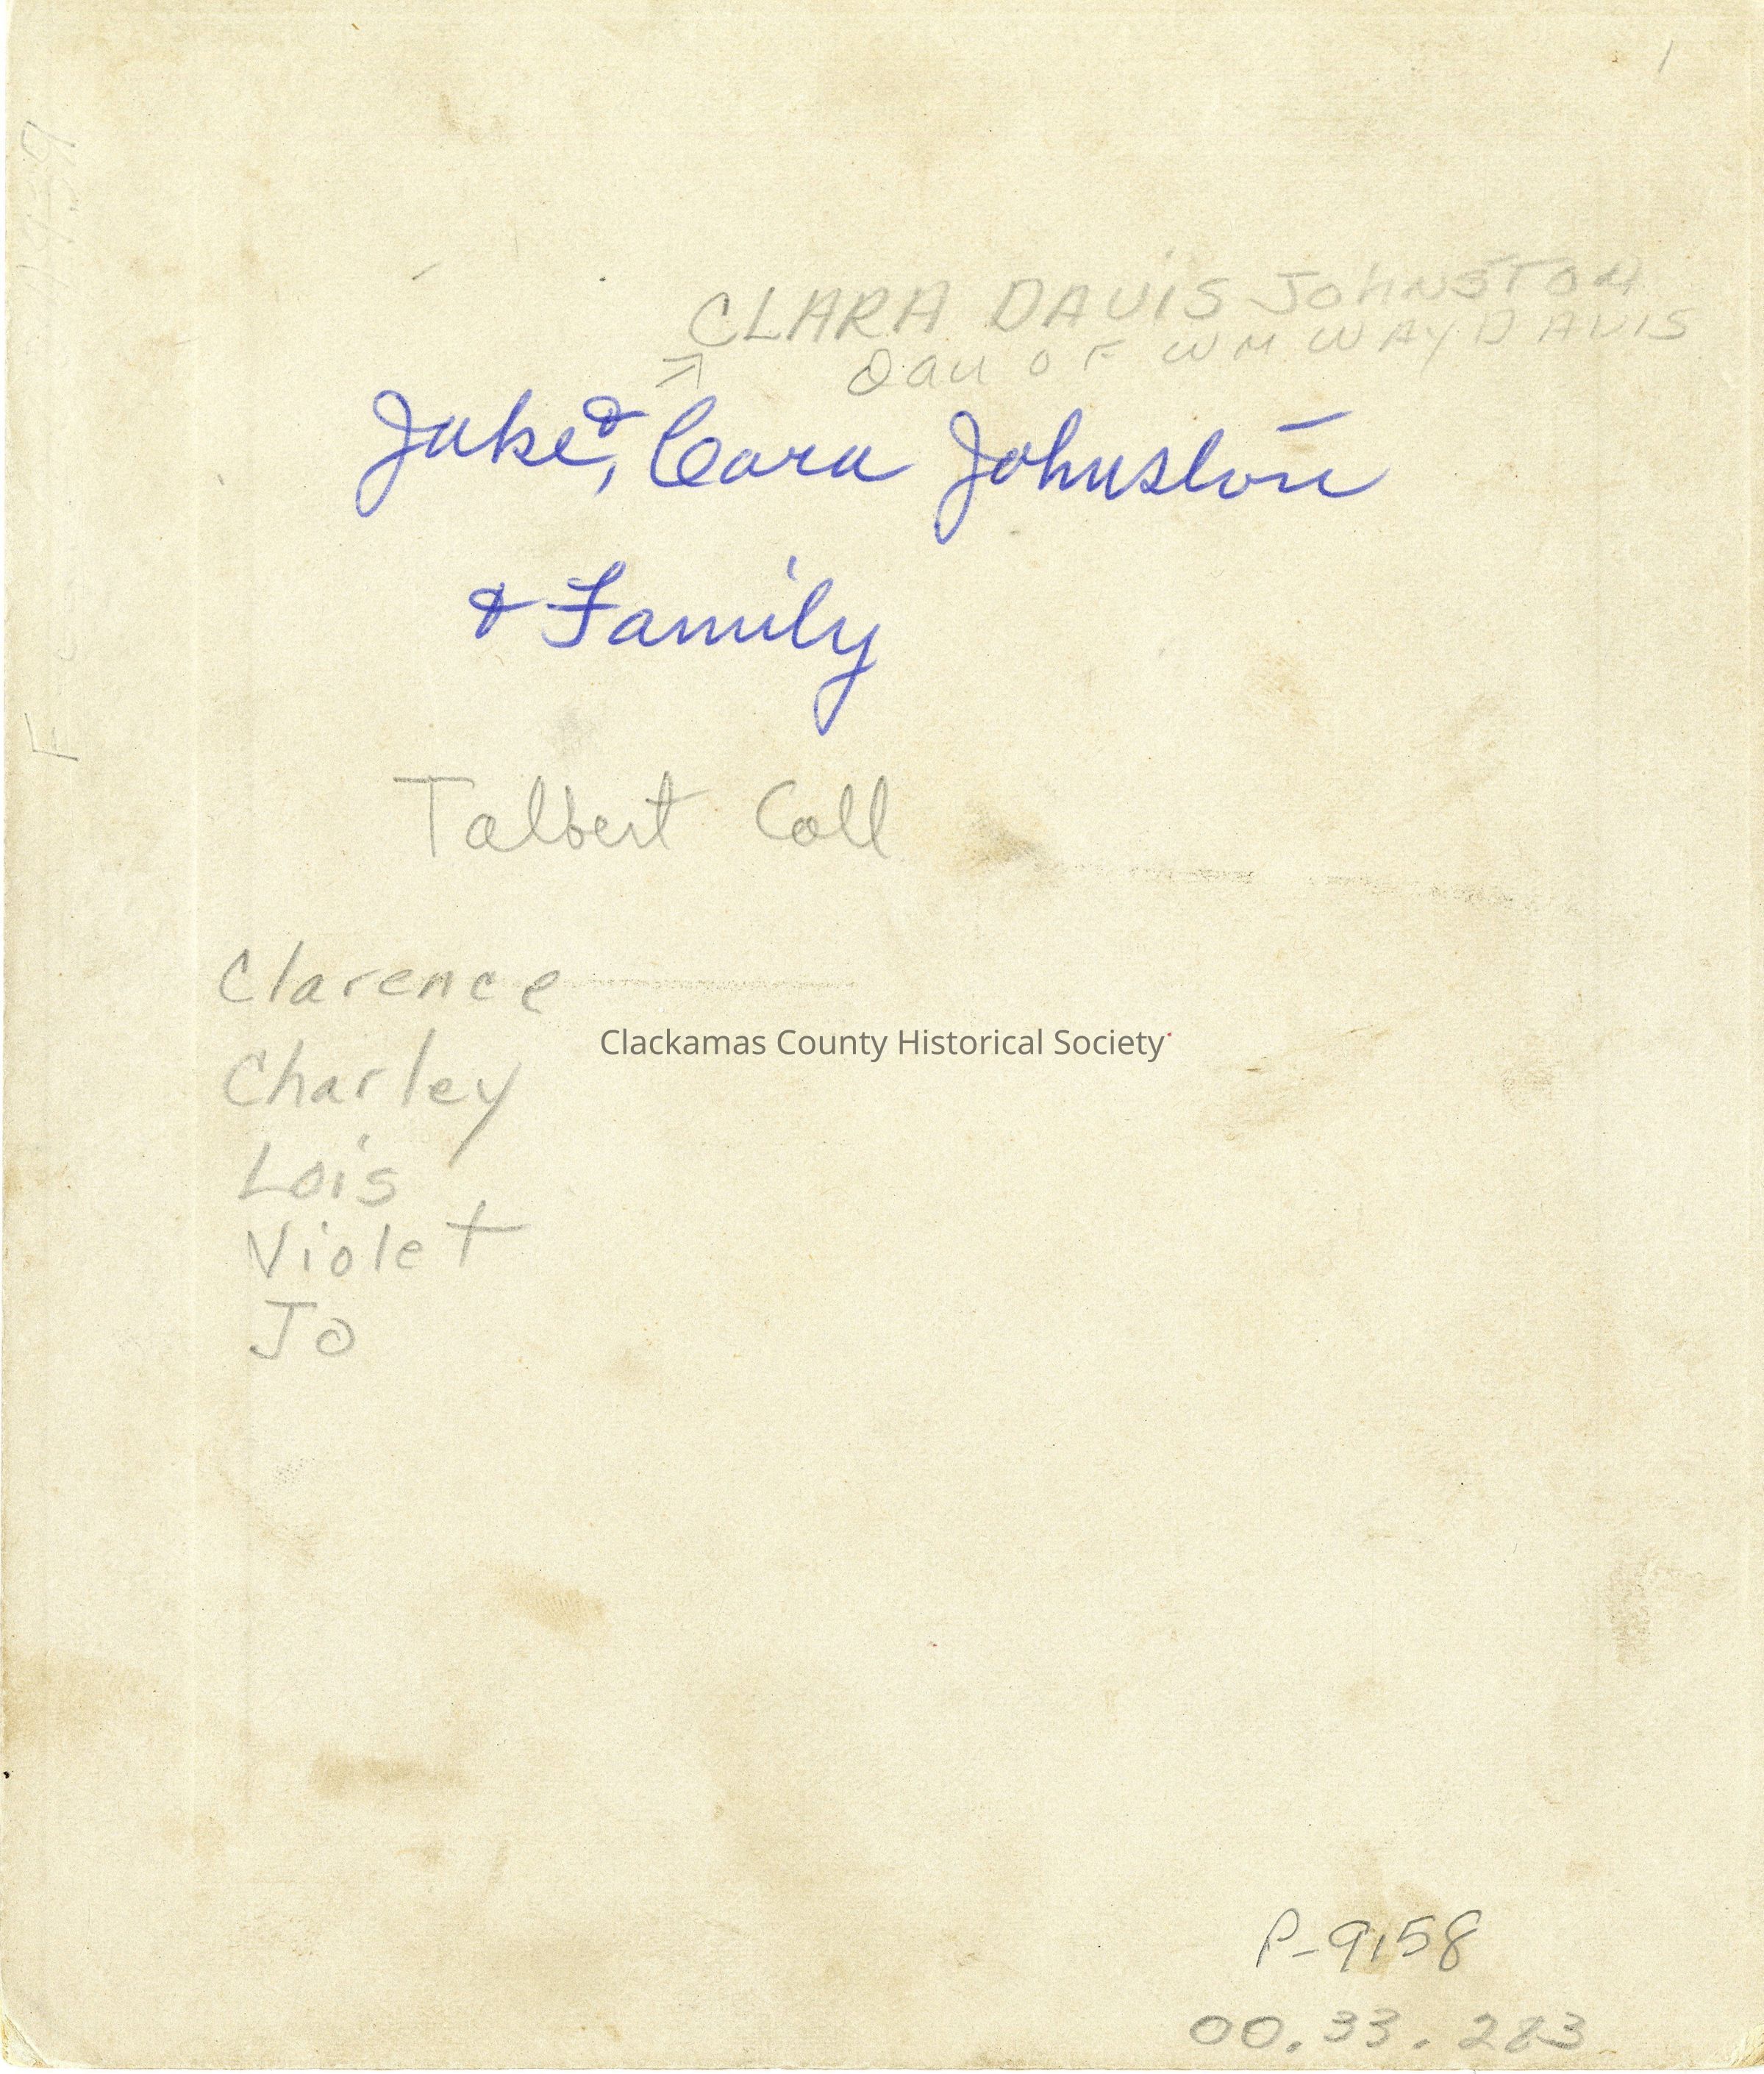 CLARA DAVIS JOHNSTON
Dau OF WM WAY DAVIS
Jake &, Clara Johnston
& Family
Talbert Coll
Clarence
Clackamas County Historical Society
Charley
Lois
Violet
Jo
P-9158
00.33.283